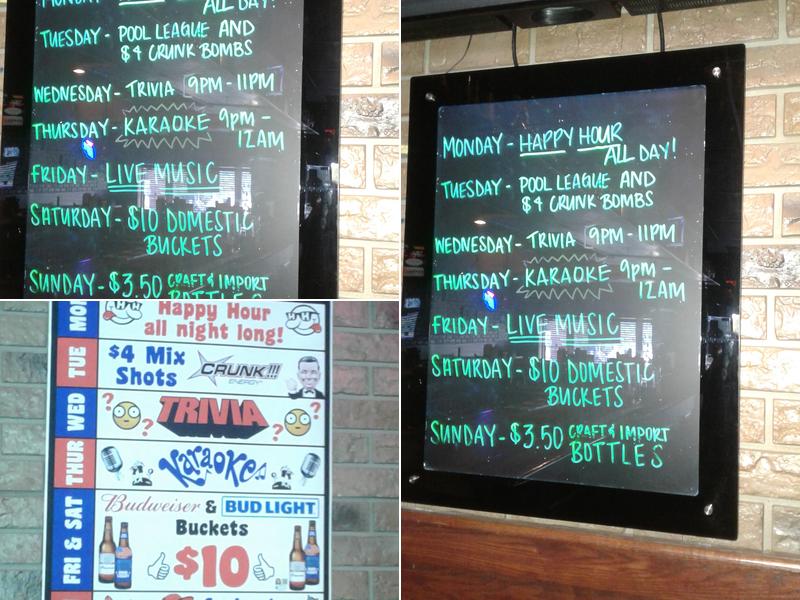 MONDAY - HAPPY HOUR
ALL DAY!
TUESDAY - POOL LEAGUE AND
$4 CRUNK BOMBS
WEDNESDAY - TRIVIA 9PM - 11PM
THURSDAY - KARAOKE 9pm -
12AM
FRIDAY - LIVE MUSIC
SATURDAY - $10 DOMESTIC
BUCKETS
SUNDAY - $3.50 CRAFT & IMPORT
BOTTLES
MON
HA HA
Happy Hour
all night long!
HA HA
TUE
$4 Mix
Shots
CRUNK!!!
ENERGY
WED
? ? TRIVIA ? ?
THUR
Karaoke
FRI & SAT
Budweiser & BUD LIGHT
Buckets
$10
MONDAY - HAPPY HOUR
ALL DAY!
TUESDAY - POOL LEAGUE AND
$4 CRUNK BOMBS
WEDNESDAY - TRIVIA 9PM - 11PM
THURSDAY - KARAOKE 9pm -
12AM
FRIDAY - LIVE MUSIC
SATURDAY - $10 DOMESTIC
BUCKETS
SUNDAY - $3.50 CRAFT & IMPORT
BOTTLES